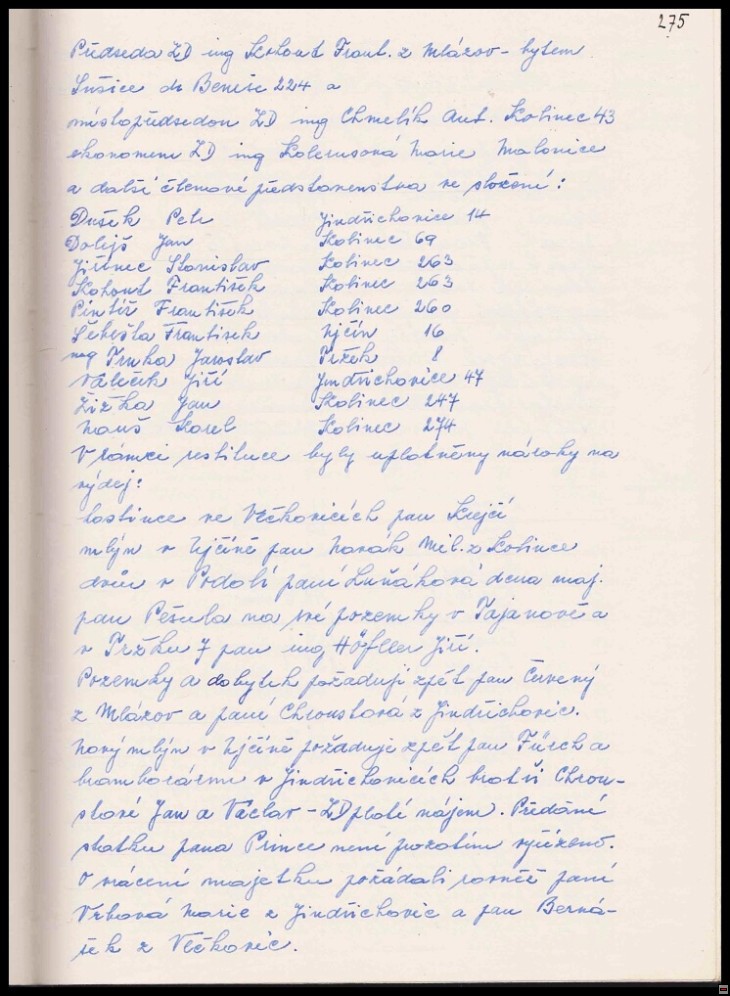 275
Předseda ZD ing Kohout Frant. z Mlázov - bytem
Sušice dr Beneše 224 a
místopředsedou ZD ing Chmelík Ant. Kolinec 43
ekonomem ZD ing Kolerusová Marie Malonice
a další členové představenstva ve složení:
Dušek Petr Jindřichovice 14
Dolejš Jan Kolinec 69
Jiřinec Stanislav Kolinec 263
Kohout František Kolinec 263
Pintíř František Kolinec 260
Šebesta František Ujčín 16
ing Trnka Jaroslav Tržek 8
Váleček Jiří Jindřichovice 47
Žižka Jan Kolinec 247
Nauš Karel Kolinec 274
V rámci restituce byly uplatněny nároky na
výdej:
hostince ve Vlčkovicích pan Krejčí
mlýn v Ujčíně pan Novák Mil. z Kolince
dvůr v Podolí paní Luňáková dcera maj.
pan Pešula na své pozemky v Tajanově a
v Tržku 7 pan ing Höfller Jiří.
Pozemky a dobytek požadují zpět pan Červený
z Mlázov a paní Chroustová z Jindřichovic.
Nový mlýn v Ujčíně požaduje zpět pan Fürch a
bramborárnu v Jindřichovicích bratři Chrou-
stové Jan a Václav - ZD platí nájem. Předání
statku pana Prince není pozatím vyřízeno.
O vrácení majetku požádali rovněž paní
Vrbová Marie z Jindřichovic a pan Berná-
šek z Vlčkovic.